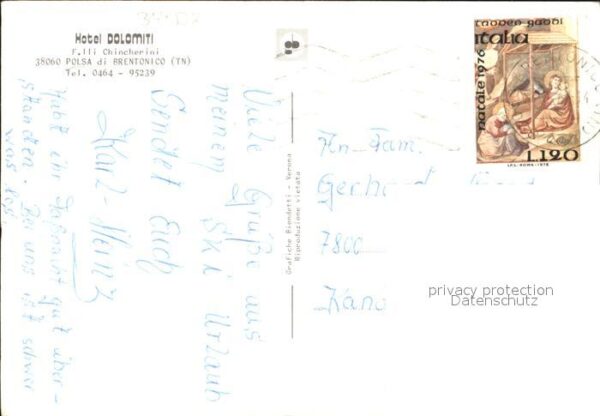 Hotel DOLOMITI
F.lli Chincherini
38060 POLSA di BRENTONICO (TN)
Tel. 0464 - 95239
Viele Grüße aus
meinem Ski Urlaub
Sendet Euch
Karl-Heinz
Habt ihr gut über-
standen. Bei uns ist schwer
was los
Grafiche Biondetti - Verona
Riproduzione vietata
taddeo gaddi
italia
natale 1976
L.120
I.P.S.-ROMA-1976
An Fam.
Gerhard
7800
privacy protection
Datenschutz